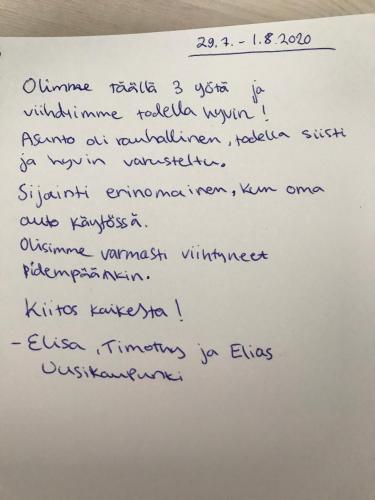 29.7. - 1.8.2020
Olimme täällä 3 yötä ja
viihdyimme todella hyvin!
Asunto oli rauhallinen, todella siisti
ja hyvin varusteltu.
Sijainti erinomainen, kun oma
auto käytössä.
Olisimme varmasti viihtyneet
pidempäänkin.
Kiitos kaikesta!
- Elisa, Timothy ja Elias
Uusikaupunki